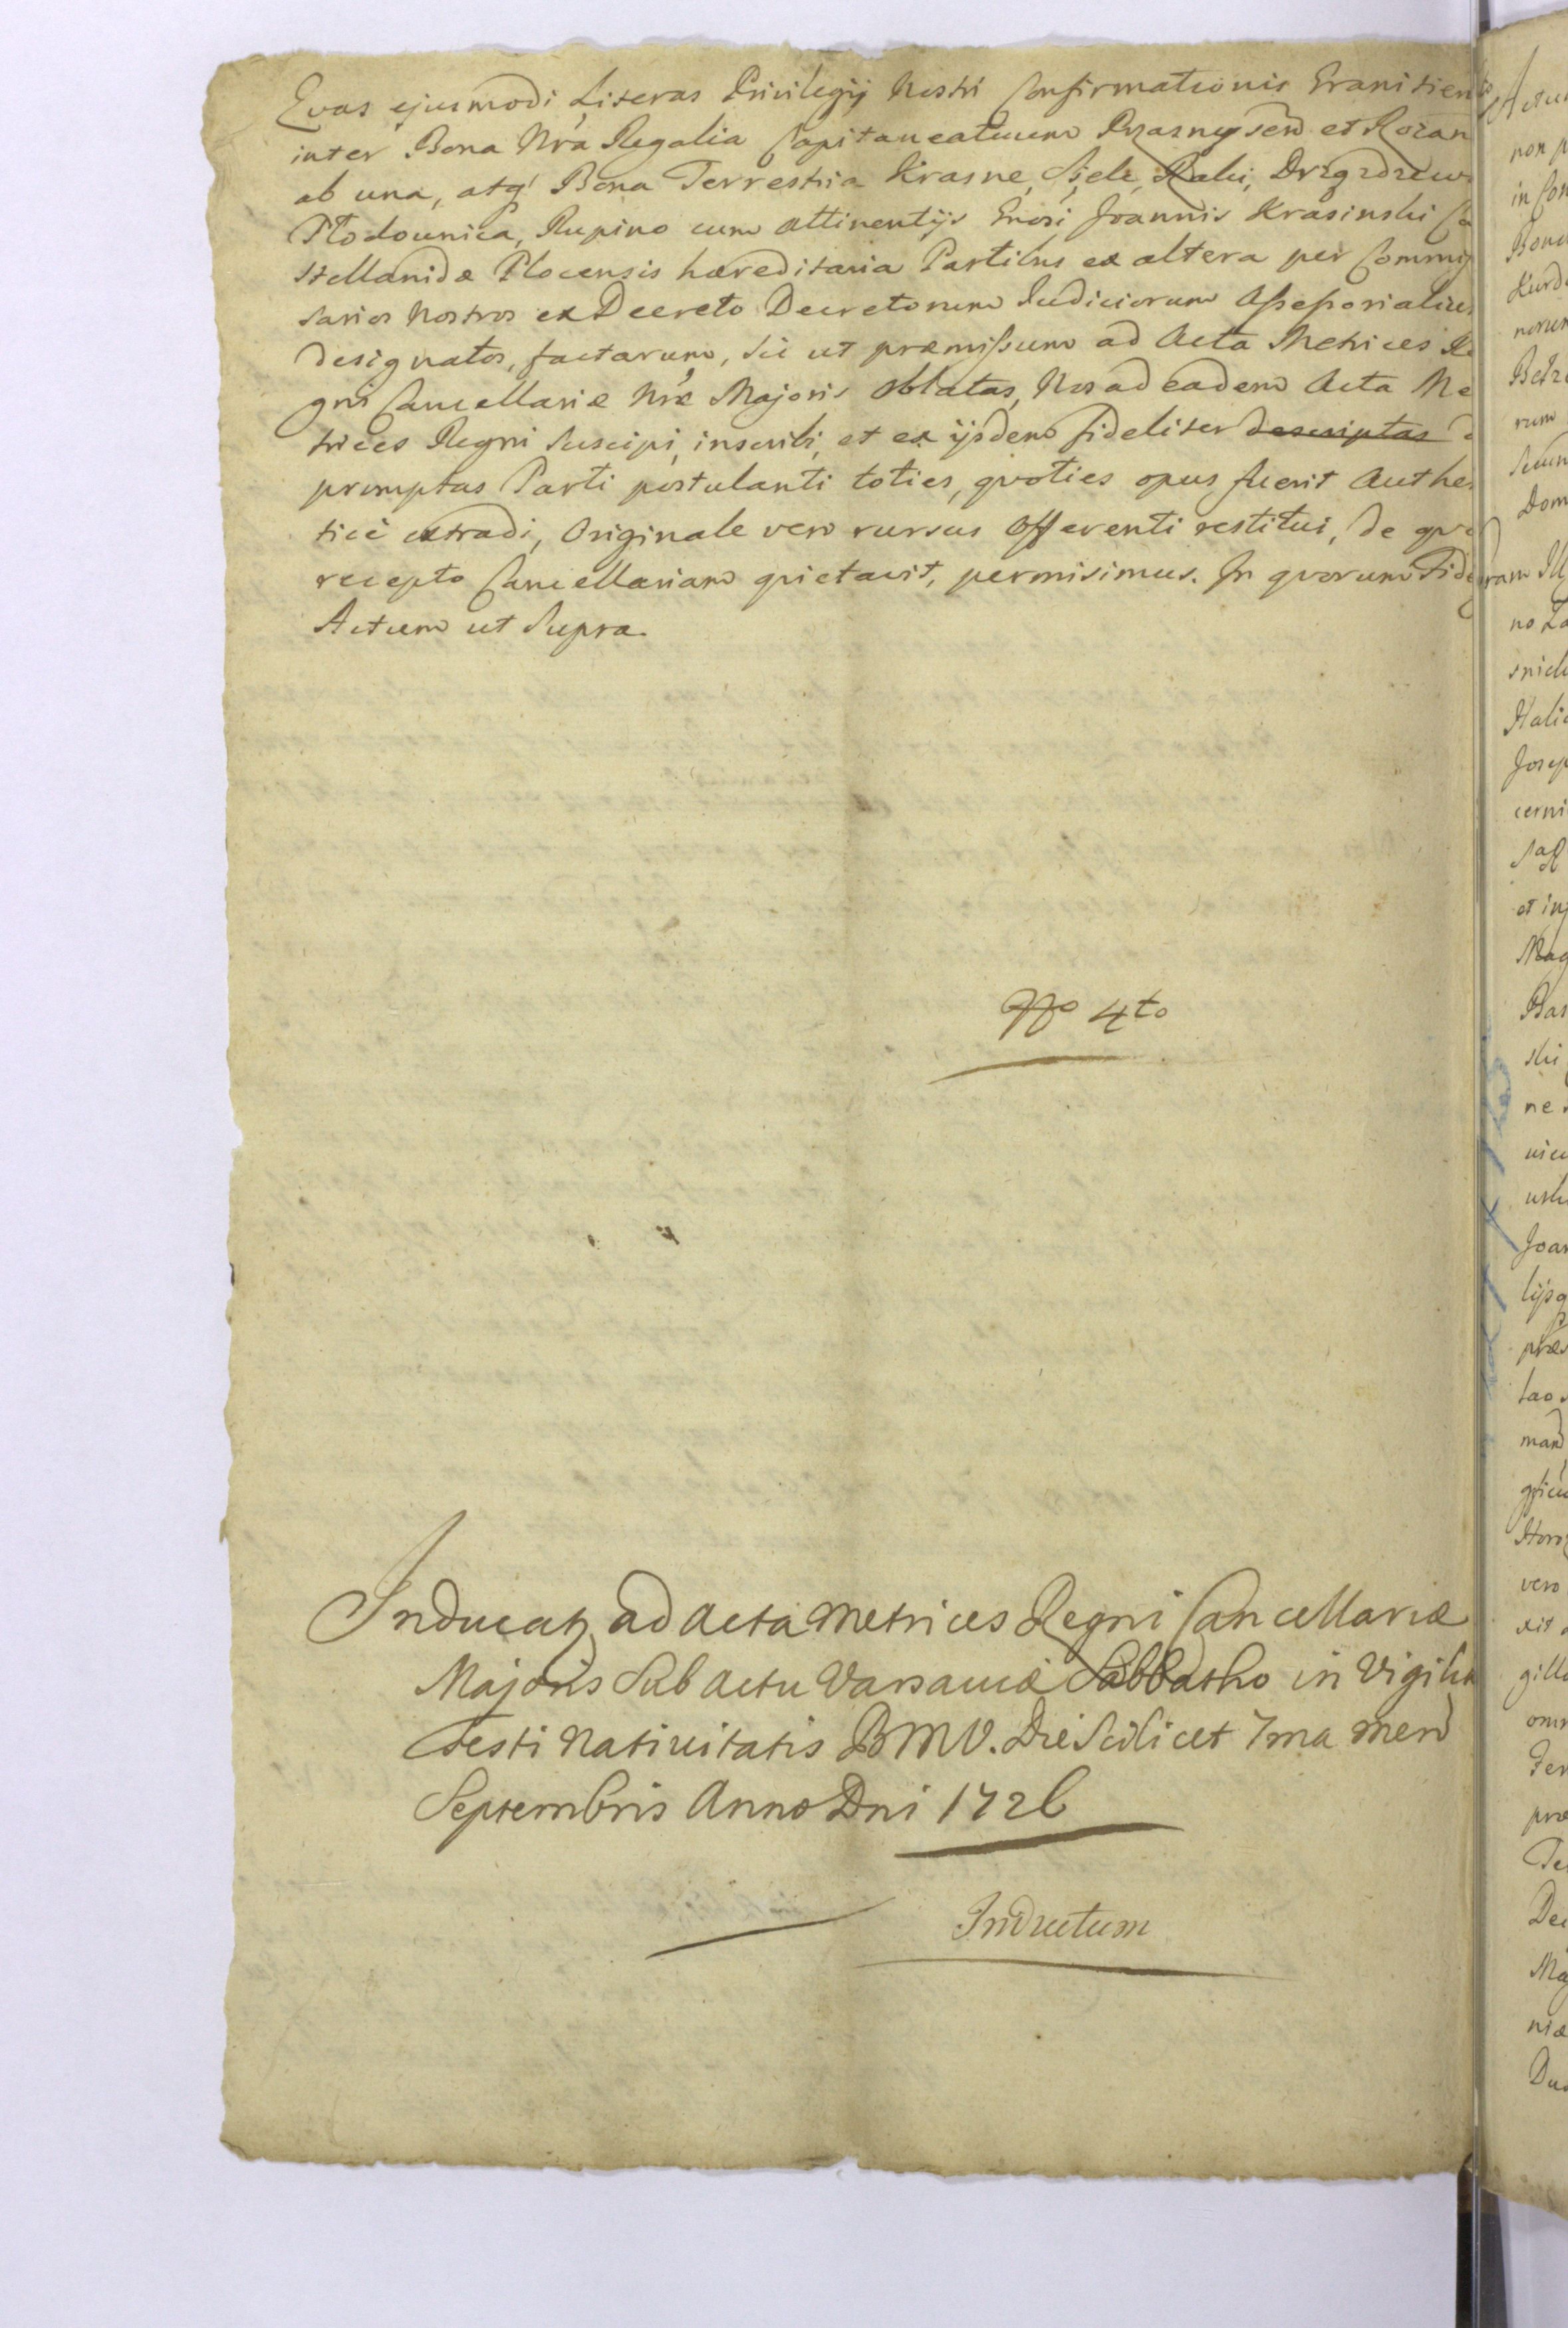 Quas ejusmodi Literas Privilegij Nostri Confirmationis Granitien
inter Bona Nra Regalia Capitaneatuum Przasnysen et Rozan
ab una, atq Bona Terrestria Krasne, Siele, Raki,
Płodownica, Rupino cum attinentijs Gnosi Joannis Krasinski Ca
stellanidæ Plocensis hæreditaria Partibus ex altera per Commis
sarios Nostros ex Decreto Decretorum Judiciorum Assessorialiu
designatos, factarum, sic ut præmissum ad Acta Metrices Re
gni Cancellariæ Nræ Majoris oblatas, Nos ad eadem Acta Me
trices Regni suscipi, inscribi, et ex ijsdem fideliter descriptas d
promptas Parti postulanti toties, qvoties opus fuerit Authen
ticè extradi, Originale vero rursus Offerenti restitui, de qvo
recepto Cancellariam qvietavit, permisimus. In qvorum Fide
Actum ut Supra.
No 4to
Inducatz ad Acta Metrices Regni Cancellariæ
Majoris Sub actu Varsaviæ Sabbatho in Vigilia
Festi Nativitatis BMV. Die Scilicet 7ma Mens
Septembris Anno Dni 1726
Inductum